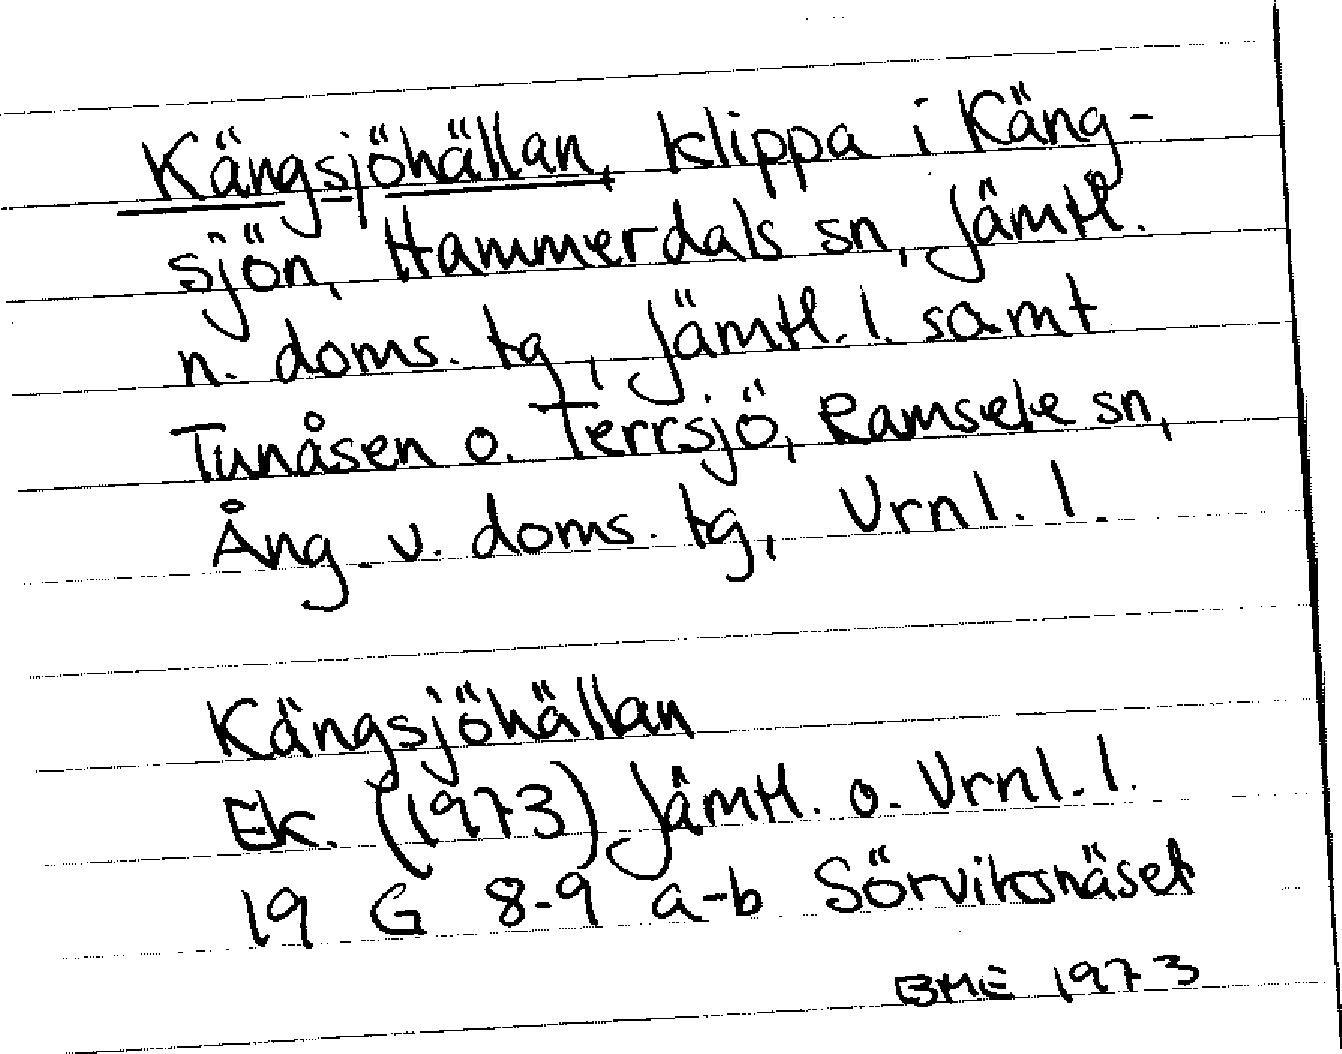 Kängsjöhällan, klippa i Käng-
sjön, Hammerdals sn, Jämtl.
n. doms. tg, Jämtl. l. samt
Tunåsen o. Terrsjö, Ramsele sn,
Ång. v. doms. tg, Vrnl. l.
Kängsjöhällan
Ek. (1973) Jämtl. o. Vrnl. l.
19 G 8-9 a-b Sörviksnäset
BME 1973